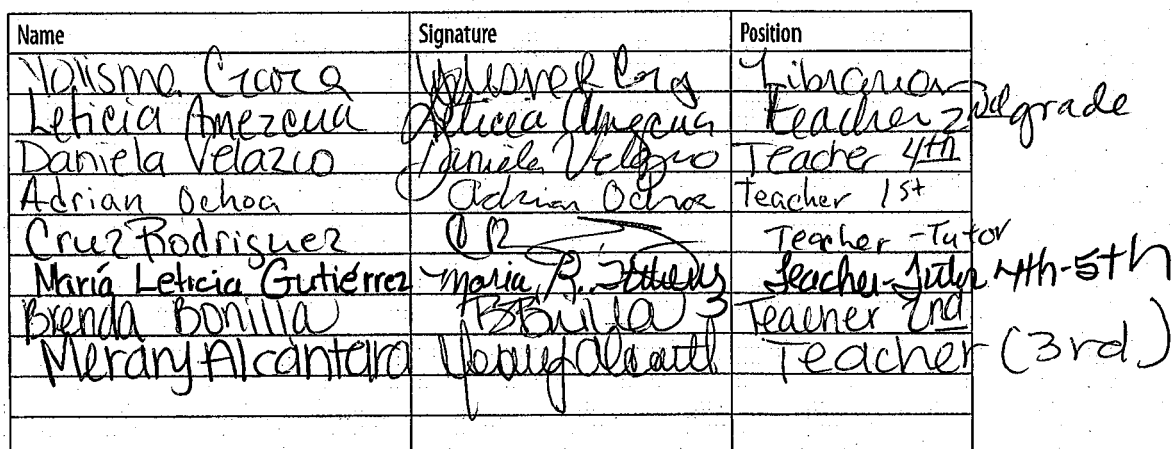 Name Signature Position
Librarian
Leticia Amezcua Leticia Amezcua Teacher 2nd grade
Daniela Velazco Daniela Velazco Teacher 4th
Adrian Ochoa Adrian Ochoa Teacher 1st
Cruz Rodriguez CR Teacher - Tutor
María Leticia Gutiérrez Maria Teacher-Tutor 4th-5th
Brenda Bonilla BBonilla Teacher 2nd
Merany Alcántara Teacher (3rd)